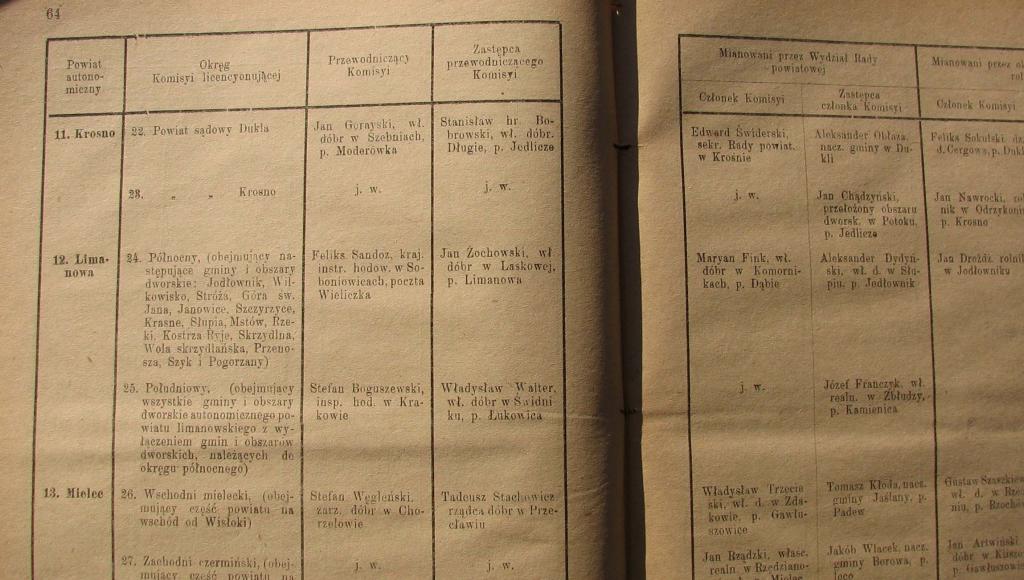 64
Powiat
autono-
miczny
Okręg
Komisyi licencyonującej
Przewodniczący
Komisyi
Zastępca
przewodniczącego
Komisyi
11. Krosno
22. Powiat sądowy Dukla
Jan Gorayski, wł.
dóbr w Szebniach,
p. Moderówka
Stanisław hr. Bo-
browski, wł. dóbr.
Długie, p. Jedlicze
23. „ „ Krosno
j. w.
j. w.
12. Lima-
nowa
24. Północny, (obejmujący na-
stępujące gminy i obszary
dworskie: Jodłownik, Wil-
kowisko, Stróża, Góra św.
Jana, Janowice, Szczyrzyce,
Krasne, Słupia, Mstów, Rze-
ki, Kostrza Ryje, Skrzydlna,
Wola skrzydlańska, Przeno-
sza, Szyk i Pogorzany)
Feliks Sandoz, kraj.
instr. hodow. w So-
boniowicach, poczta
Wieliczka
Jan Żochowski, wł.
dóbr w Laskowej,
p. Limanowa
25. Południowy, (obejmujący
wszystkie gminy i obszary
dworskie autonomicznego po-
wiatu limanowskiego z wy-
łączeniem gmin i obszarów
dworskich, należących do
okręgu północnego)
Stefan Boguszewski,
insp. hod. w Kra-
kowie
Władysław Walter,
wł. dóbr w Świdni-
ku, p. Łukowica
13. Mielec
26. Wschodni mielecki, (obej-
mujący część powiatu na
wschód od Wisłoki)
Stefan Węgleński,
zarz. dóbr w Cho-
rzelowie
Tadeusz Stachowicz
rządca dóbr w Prze-
cławiu
27. Zachodni czermiński, (obej-
mujący część powiatu na
j. w.
j. w.
Mianowani przez Wydział Rady
powiatowej
Mianowani przez
Członek Komisyi
Zastępca
członka Komisyi
Członek Komisyi
Edward Świderski,
sekr. Rady powiat.
w Krośnie
Aleksander Obłaza,
nacz. gminy w Du-
kli
Feliks Sokulski,
d. Cergowa, p. Dukl
j. w.
Jan Chądzyński,
przełożony obszaru
dworsk. w Potoku,
p. Jedlicze
Jan Nawrocki,
nik w Odrzykoni
p. Krosno
Maryan Fink, wł.
dóbr w Komorni-
kach, p. Dąbie
Aleksander Dydyń-
ski, wł. d. w Słu-
piu, p. Jodłownik
Jan Dróżdż, rolnik
w Jodłowniku
j. w.
Józef Franczyk, wł.
realn. w Zbłudzy,
p. Kamienica
Władysław Trzecie
ski, wł. d. w Zda-
kowie, p. Gawłu-
szowice
Tomasz Kłoda, nacz.
gminy Jaślany, p.
Padew
Gustaw Szaszkie
wł. d. w Rze
niu, p. Rzocho
Jan Rządzki, właśc.
realn. w Rzędziano-
Mielec
Jakób Wlacek, nacz.
gminy Borowa, p.
Jan Artwiński
dóbr w
p. Gawłuszowi